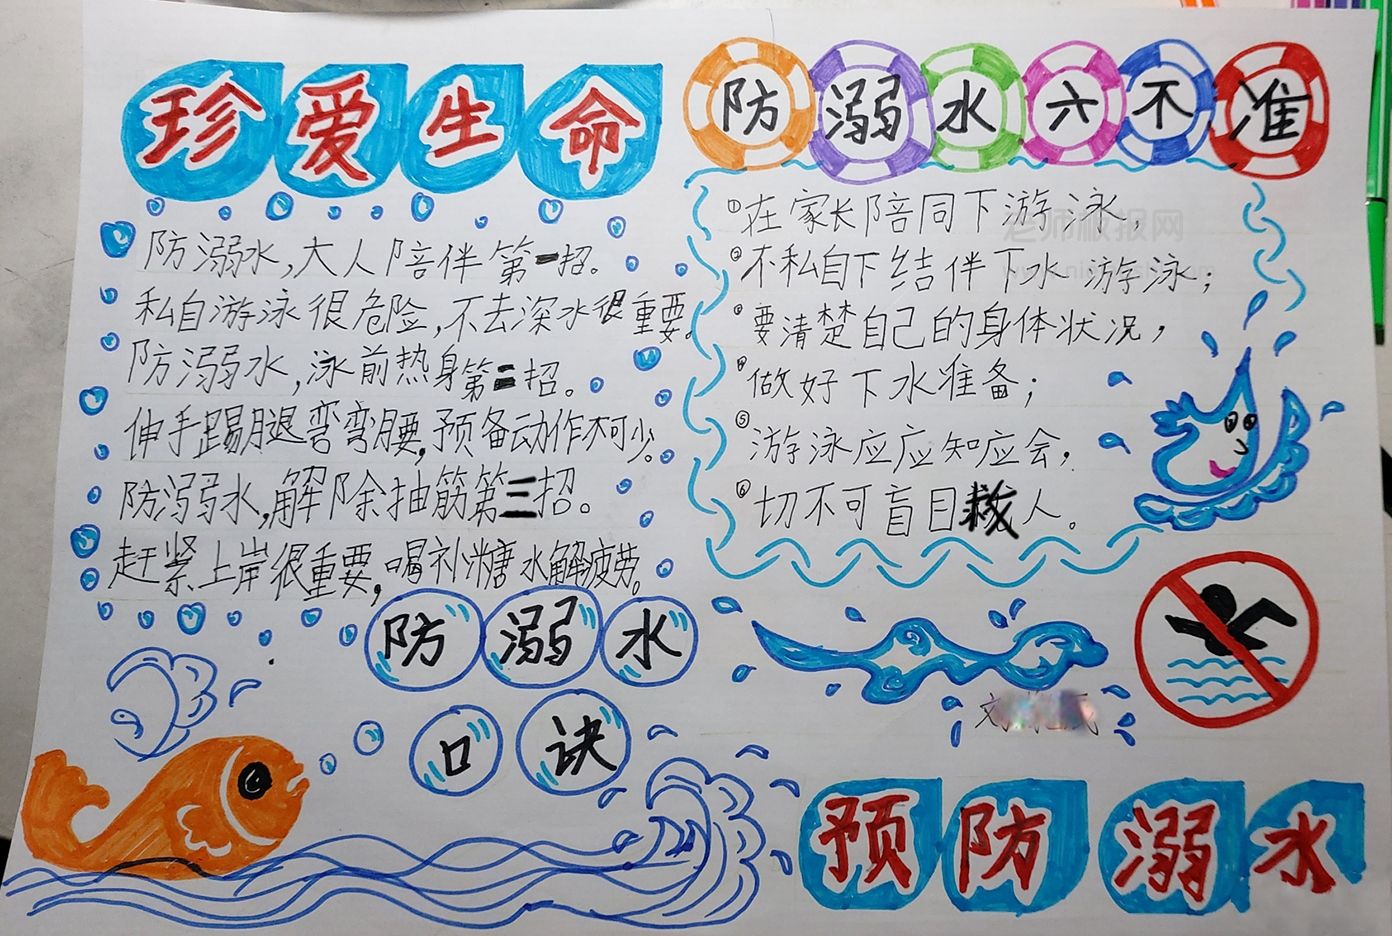 珍爱生命
防溺水,大人陪伴第一招。
私自游泳很危险,不去深水很重要。
防溺水,泳前热身第二招。
伸手踢腿弯弯腰,预备动作不可少。
防溺水,解除抽筋第三招。
赶紧上岸很重要,喝补糖水解疲劳。
防溺水
口诀
防溺水六不准
①在家长陪同下游泳,
②不私自下结伴下水游泳;
③要清楚自己的身体状况,
④做好下水准备;
⑤游泳应应知应会,
⑥切不可盲目救人。
老师板报网
预防溺水